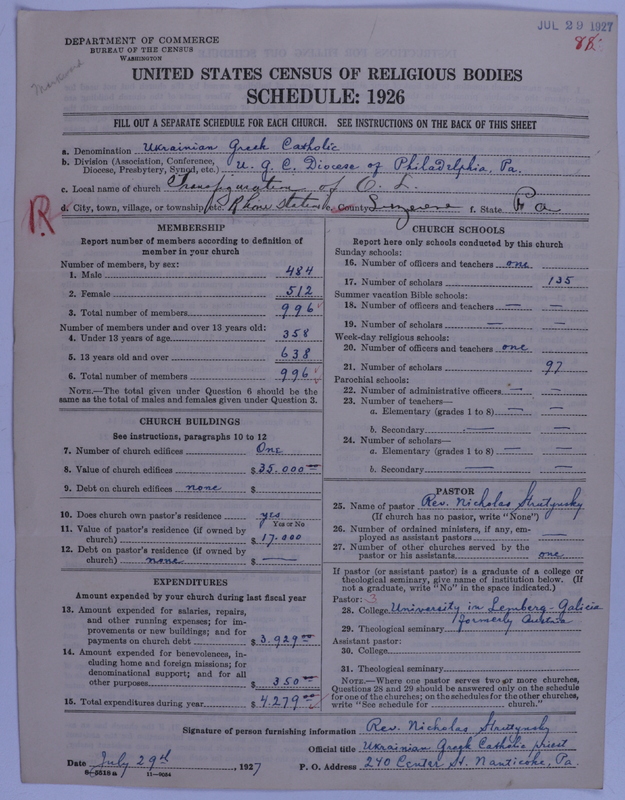 JUL 29 1927
DEPARTMENT OF COMMERCE
BUREAU OF THE CENSUS
WASHINGTON
UNITED STATES CENSUS OF RELIGIOUS BODIES
SCHEDULE: 1926
FILL OUT A SEPARATE SCHEDULE FOR EACH CHURCH. SEE INSTRUCTIONS ON THE BACK OF THIS SHEET
a. Denomination Ukrainian Greek Catholic
b. Division (Association, Conference, Diocese, Presbytery, Synod, etc.) U. G. C. Diocese of Philadelphia, Pa.
c. Local name of church Transfiguration of O. L.
d. City, town, village, or township, etc. Rhone Station e. County Luzerne f. State Pa
R
MEMBERSHIP
Report number of members according to definition of
member in your church
Number of members, by sex:
1. Male 484
2. Female 512
3. Total number of members 996
Number of members under and over 13 years old:
4. Under 13 years of age 358
5. 13 years old and over 638
6. Total number of members 996
NOTE.—The total given under Question 6 should be the
same as the total of males and females given under Question 3.
CHURCH BUILDINGS
See instructions, paragraphs 10 to 12
7. Number of church edifices One
8. Value of church edifices $35.000 00
9. Debt on church edifices none $
10. Does church own pastor's residence yes
Yes or No
11. Value of pastor's residence (if owned by
church) $17.000
12. Debt on pastor's residence (if owned by
church) none $ —
EXPENDITURES
Amount expended by your church during last fiscal year
13. Amount expended for salaries, repairs,
and other running expenses; for im-
provements or new buildings; and for
payments on church debt $3.929 00
14. Amount expended for benevolences, in-
cluding home and foreign missions; for
denominational support; and for all
other purposes $350 00
15. Total expenditures during year $4.279 00
CHURCH SCHOOLS
Report here only schools conducted by this church
Sunday schools:
16. Number of officers and teachers one
17. Number of scholars 135
Summer vacation Bible schools:
18. Number of officers and teachers — —
19. Number of scholars — —
Week-day religious schools:
20. Number of officers and teachers one
21. Number of scholars 97
Parochial schools:
22. Number of administrative officers — —
23. Number of teachers—
a. Elementary (grades 1 to 8) — —
b. Secondary — —
24. Number of scholars—
a. Elementary (grades 1 to 8) — —
b. Secondary — —
PASTOR
25. Name of pastor Rev. Nicholas Strutynsky
(If church has no pastor, write "None")
26. Number of ordained ministers, if any, em-
ployed as assistant pastors —
27. Number of other churches served by the
pastor or his assistants one
If pastor (or assistant pastor) is a graduate of a college or
theological seminary, give name of institution below. (If
not a graduate, write "No" in the space indicated.)
Pastor: 3
28. College University in Lemberg-Galicia
29. Theological seminary formerly Austria
Assistant pastor:
30. College
31. Theological seminary
NOTE.—Where one pastor serves two or more churches,
Questions 28 and 29 should be answered only on the schedule
for one of the churches; on the schedules for the other churches,
write "See schedule for church."
Signature of person furnishing information Rev. Nicholas Strutynsky
Official title Ukrainian Greek Catholic priest
Date July 29th, 1927 P. O. Address 240 Center St. Nanticoke, Pa.
8—5518a 11—9054